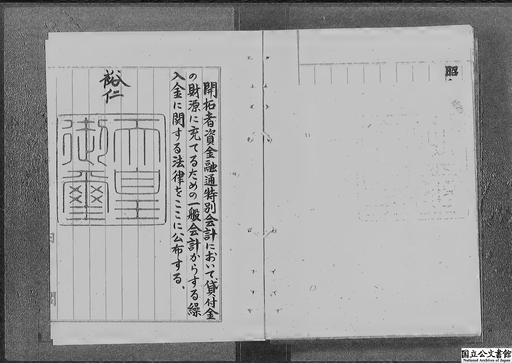 開拓者資金融通特別会計において、貸付金
の財源に充てるための一般会計からする繰
入金に関する法律をここに公布する、
裕仁
天皇御璽
昭
国立公文書館
National Archives of Japan